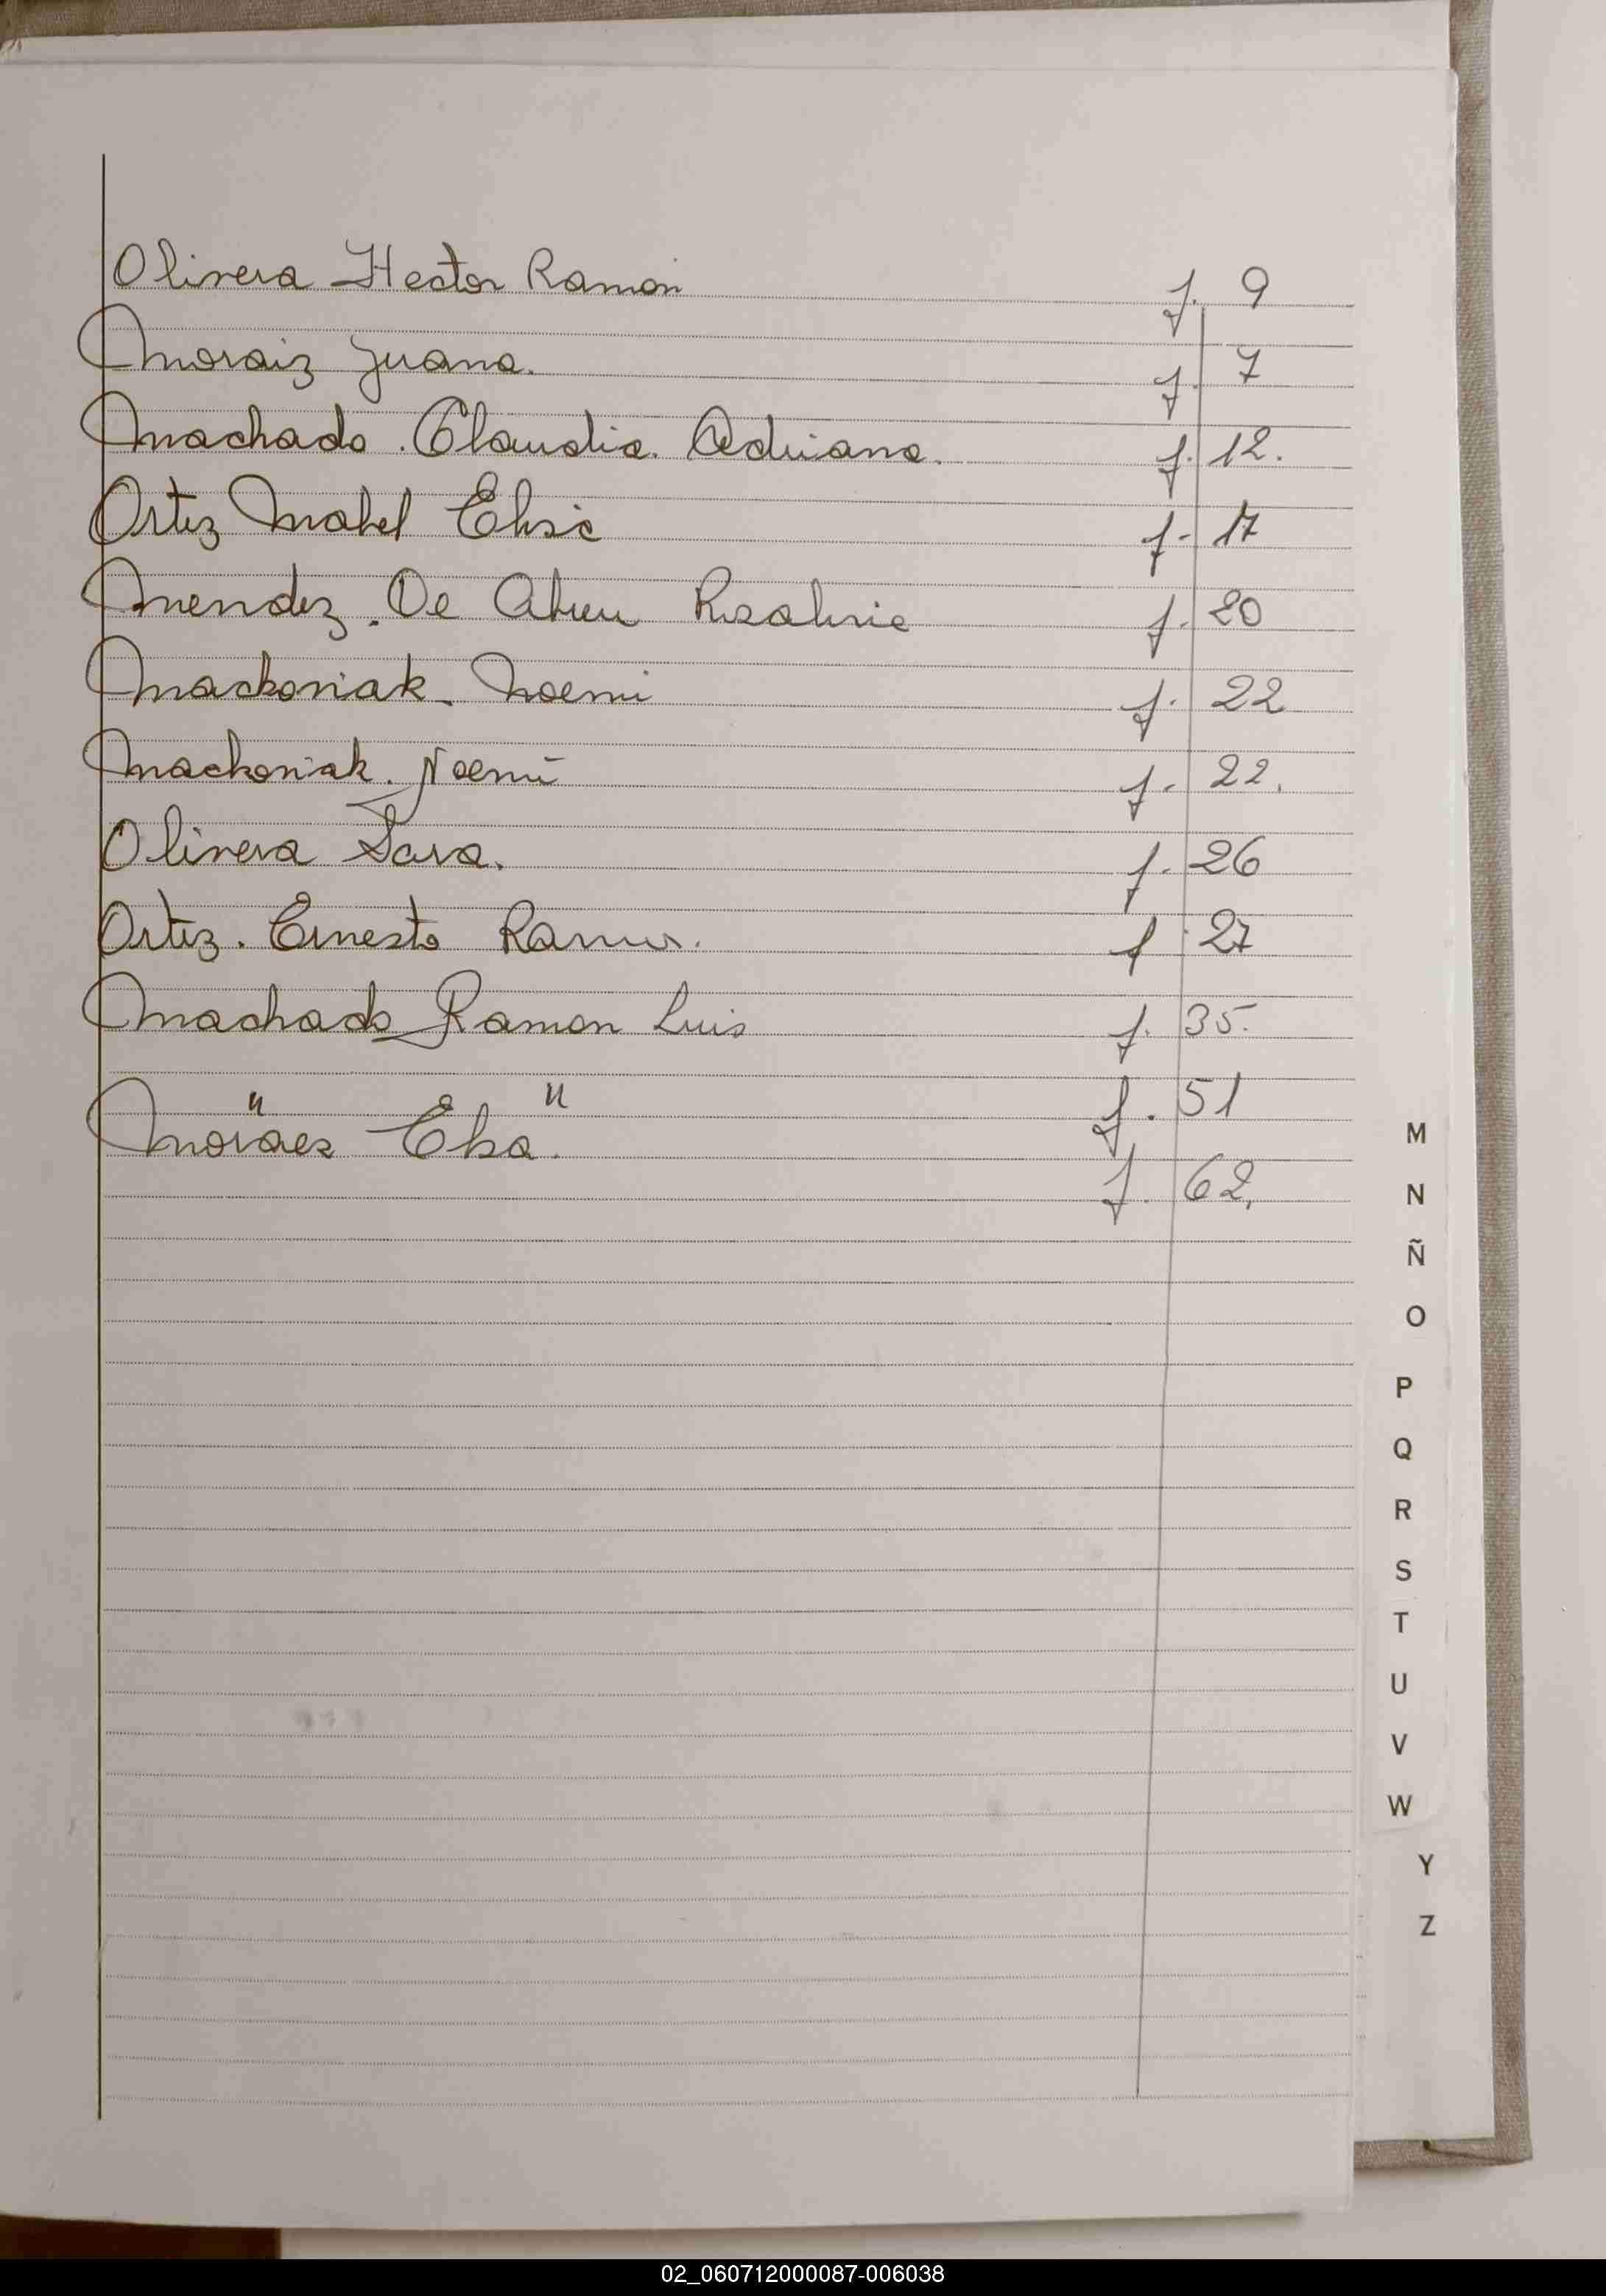 Olivera Hector Ramon f. 9
Moraiz Juana. f. 7
Machado. Claudia. Adriana. f. 12.
Ortiz Mabel Elisa f. 17
Mendez. De Abreu Rosalina f. 20
Mackoniak. Noemi f. 22
Mackoniak. Noemi f. 22.
Olivera Sara. f. 26
Ortiz. Ernesto Ramon. f. 27
Machado Ramon Luis f. 35.
" " f. 51
Moraez Elsa. f. 62.
M
N
Ñ
O
P
Q
R
S
T
U
V
W
Y
Z
02_060712000087-006038